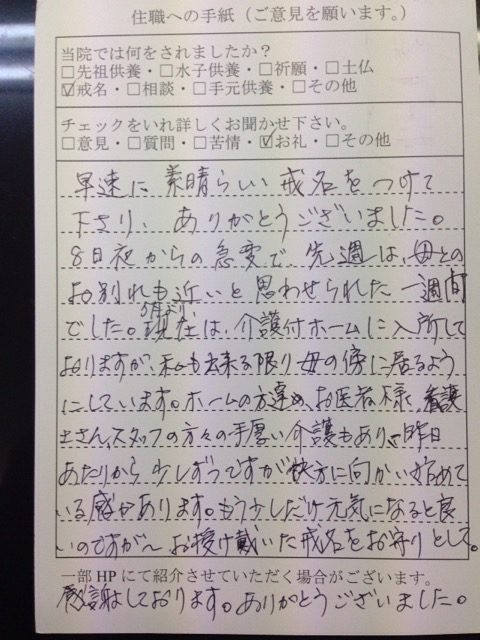 住職への手紙（ご意見を願います。）
当院では何をされましたか？
□先祖供養・□水子供養・□祈願・□土仏
☑戒名・□相談・□手元供養・□その他
チェックをいれ詳しくお聞かせ下さい。
□意見・□質問・□苦情・☑お礼・□その他
早速に 素晴らしい 戒名をつけて
下さり、ありがとうございました。
8日夜からの急変で、先週は、母との
お別れも近いと思わせられた一週間
でした。現在は、介護付ホームに入所して
おりますが、私も出来る限り母の傍に居るよう
にしています。ホームの方々、お医者様、看護
士さん、スタッフの方々の手厚い介護もあり、昨日
あたりから少しずつですが快方に向かい始めて
いる感があります。もう少しだけ元気になると良
いのですが〜 お授け戴いた戒名をお守りとして、
一部 HP にて紹介させていただく場合がございます。
感謝しております。ありがとうございました。